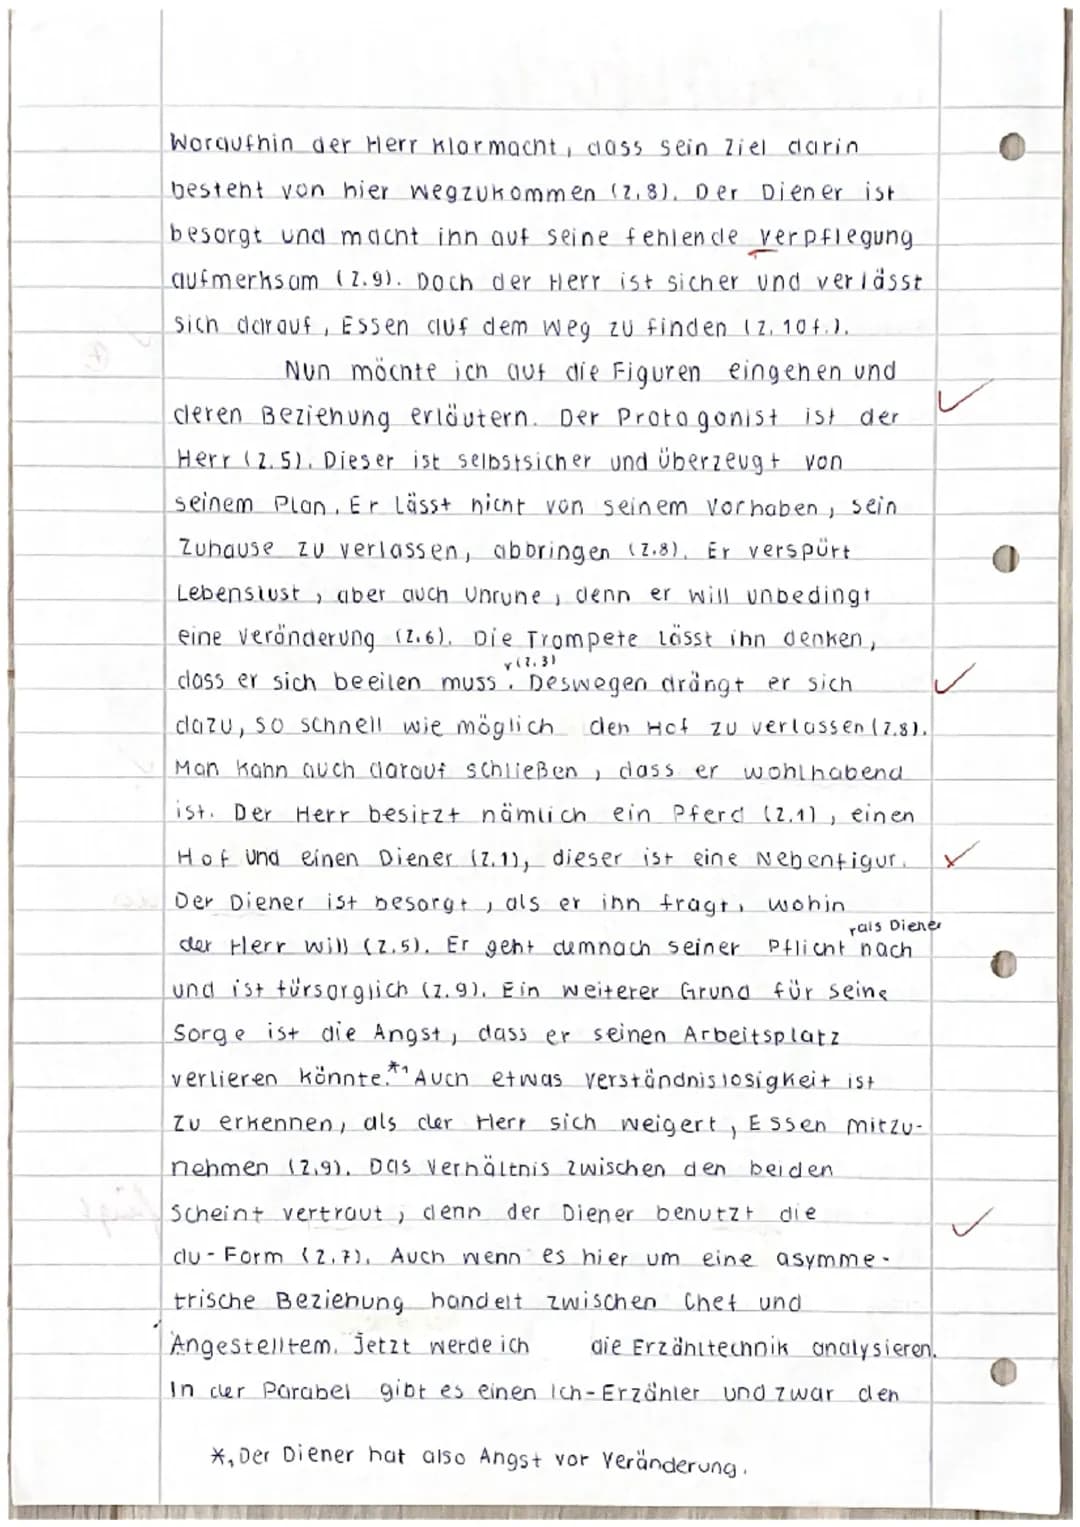 Woraufhin der Herr klarmacht, dass sein Ziel darin
besteht von hier wegzukommen (Z.8). Der Diener ist
besorgt und macht ihn auf seine fehlende Verpflegung
aufmerksam (Z.9). Doch der Herr ist sicher und verlässt
sich darauf, Essen auf dem Weg zu finden (Z.10f.).
Nun möchte ich auf die Figuren eingehen und
deren Beziehung erläutern. Der Protagonist ist der
Herr (Z.5). Dieser ist selbstsicher und überzeugt von
seinem Plan. Er lässt nicht von seinem Vorhaben, sein
Zuhause zu verlassen, abbringen (Z.8). Er verspürt
Lebenslust, aber auch Unruhe, denn er will unbedingt
eine Veränderung (Z.6). Die Trompete lässt ihn denken,
(Z.3)
dass er sich beeilen muss. Deswegen drängt er sich
dazu, so schnell wie möglich den Hof zu verlassen (Z.8).
Man kann auch darauf schließen, dass er wohlhabend
ist. Der Herr besitzt nämlich ein Pferd (Z.1), einen
Hof und einen Diener (Z.1), dieser ist eine Nebenfigur.
Der Diener ist besorgt, als er ihn fragt, wohin
als Diener
der Herr will (Z.5). Er geht demnach seiner Pflicht nach
und ist fürsorglich (Z.9). Ein weiterer Grund für seine
Sorge ist die Angst, dass er seinen Arbeitsplatz
verlieren könnte.*1 Auch etwas Verständnislosigkeit ist
zu erkennen, als der Herr sich weigert, Essen mitzu-
nehmen (Z.9). Das Verhältnis zwischen den beiden
scheint vertraut, denn der Diener benutzt die
du-Form (Z.7). Auch wenn es hier um eine asymme-
trische Beziehung handelt zwischen Chef und
Angestelltem. Jetzt werde ich die Erzähltechnik analysieren.
In der Parabel gibt es einen Ich-Erzähler und zwar den
*1 Der Diener hat also Angst vor Veränderung.